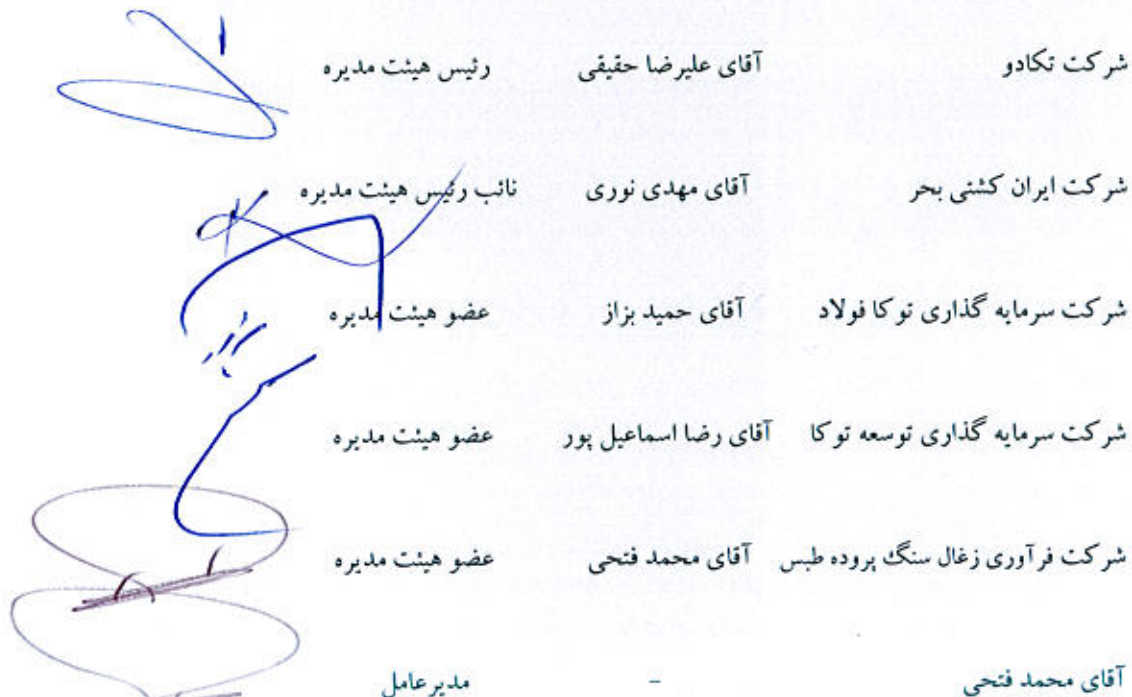 شرکت تکادو آقای علیرضا حقیقی رئیس هیئت مدیره
شرکت ایران کشتی بحر آقای مهدی نوری نائب رئیس هیئت مدیره
شرکت سرمایه گذاری توکا فولاد آقای حمید بزاز عضو هیئت مدیره
شرکت سرمایه گذاری توسعه توکا آقای رضا اسماعیل پور عضو هیئت مدیره
شرکت فرآوری زغال سنگ پروده طبس آقای محمد فتحی عضو هیئت مدیره
آقای محمد فتحی - مدیرعامل